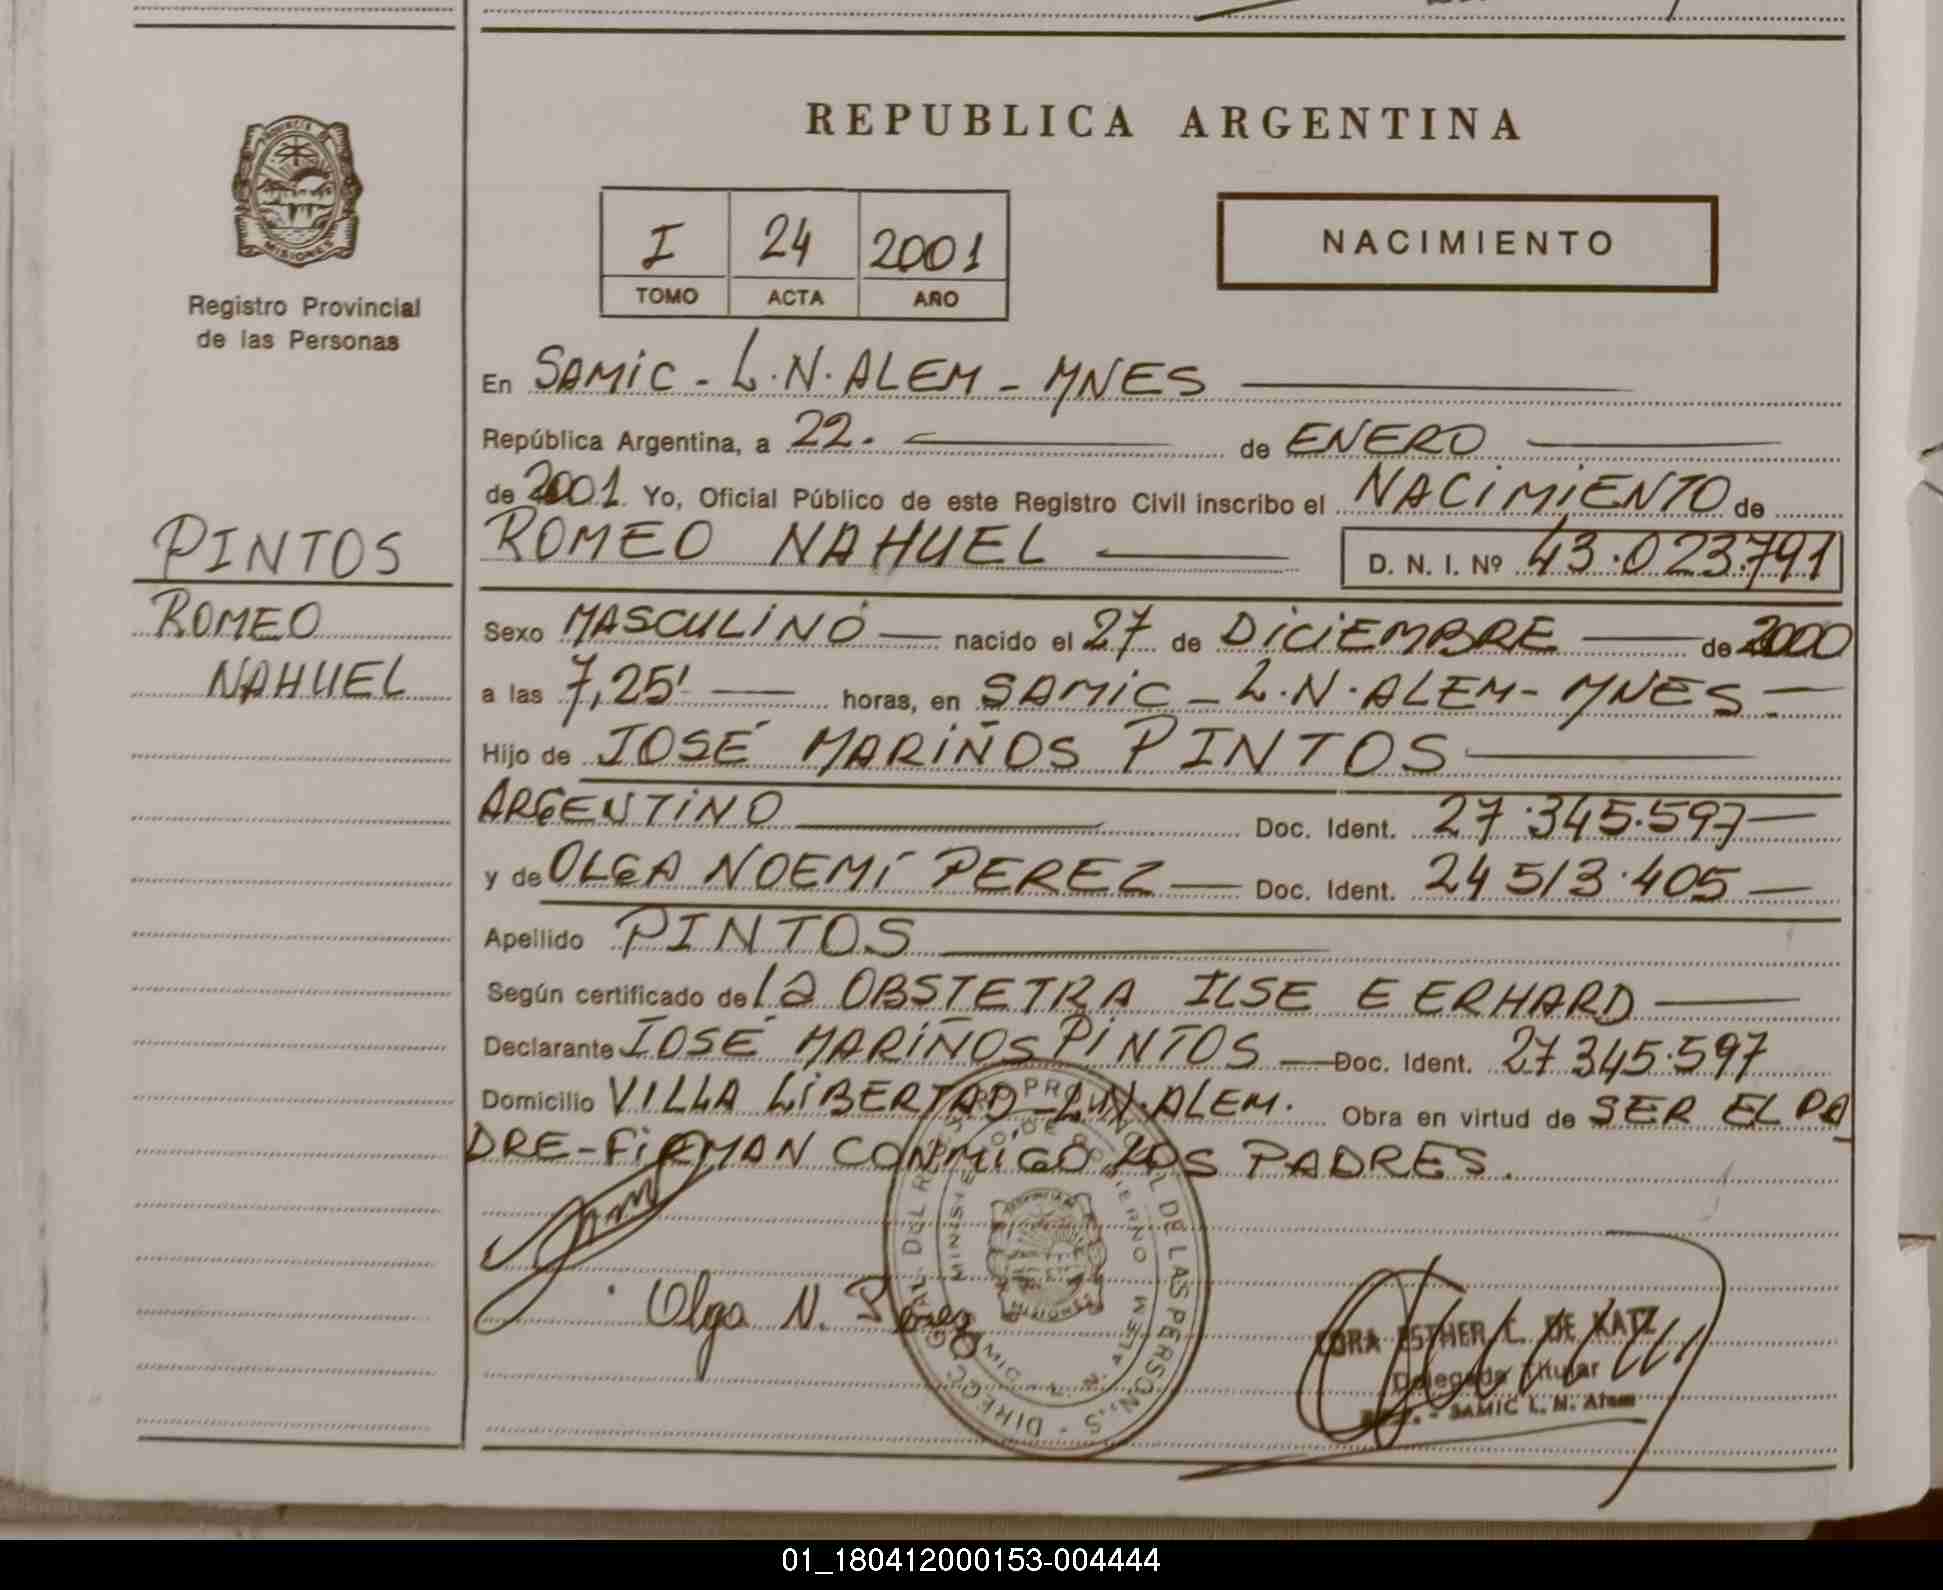 REPUBLICA ARGENTINA
PROVINCIA DE
MISIONES
Registro Provincial
de las Personas
I 24 2001
TOMO ACTA AÑO
NACIMIENTO
En SAMIC - L.N. ALEM - MNES
República Argentina, a 22. de ENERO
de 2001. Yo, Oficial Público de este Registro Civil inscribo el NACIMIENTO de
ROMEO NAHUEL D. N. I. Nº 43.023.791
PINTOS
ROMEO
NAHUEL
Sexo MASCULINO nacido el 27 de DICIEMBRE de 2000
a las 7,25' horas, en SAMIC - L.N. ALEM - MNES -
Hijo de JOSÉ MARIÑOS PINTOS
ARGENTINO Doc. Ident. 27.345.597
y de OLGA NOEMÍ PEREZ Doc. Ident. 24 513.405
Apellido PINTOS
Según certificado de la OBSTETRA ILSE E ERHARD
Declarante JOSÉ MARIÑOS PINTOS Doc. Ident. 27 345.597
Domicilio VILLA LIBERTAD - L.N. ALEM. Obra en virtud de SER EL PA
DRE - FIRMAN CONMIGO LOS PADRES.
Olga N. Perez
DE LAS PERSONAS
MISIONES
ESTHER L. DE KATZ
Delegada Titular
SAMIC L. N. Alem
01_180412000153-004444